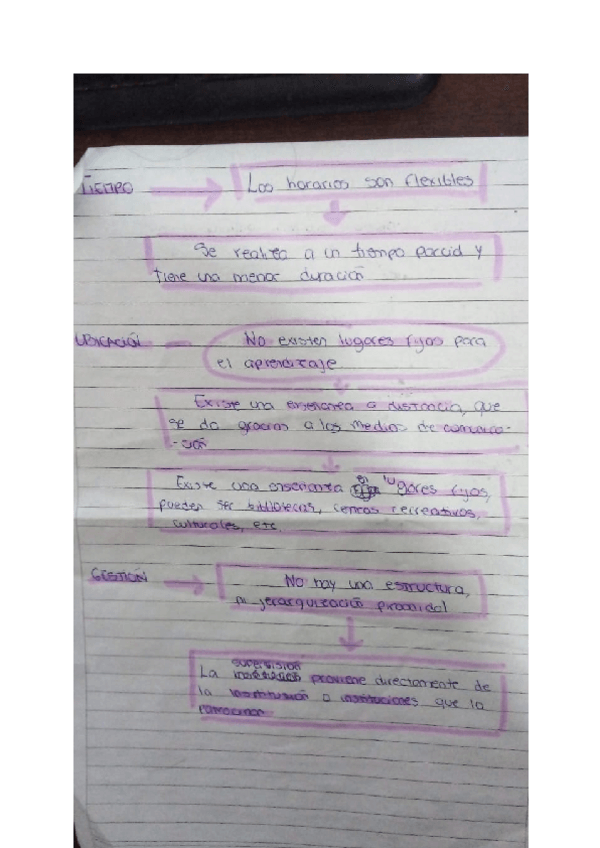 TIEMPO Los horarios son flexibles
Se realiza a un tiempo parcial y
tiene una menor duración
UBICACIÓN No existen lugares fijos para
el aprendizaje
Existe una enseñanza a distancia, que
se da gracias a los medios de comunica-
-ción
Existe una enseñanza en lugares fijos,
pueden ser bibliotecas, centros recreativos,
culturales, etc
GESTIÓN No hay una estructura,
ni jerarquización piramidal
supervisión
La proviene directamente de
la institución o instituciones que la